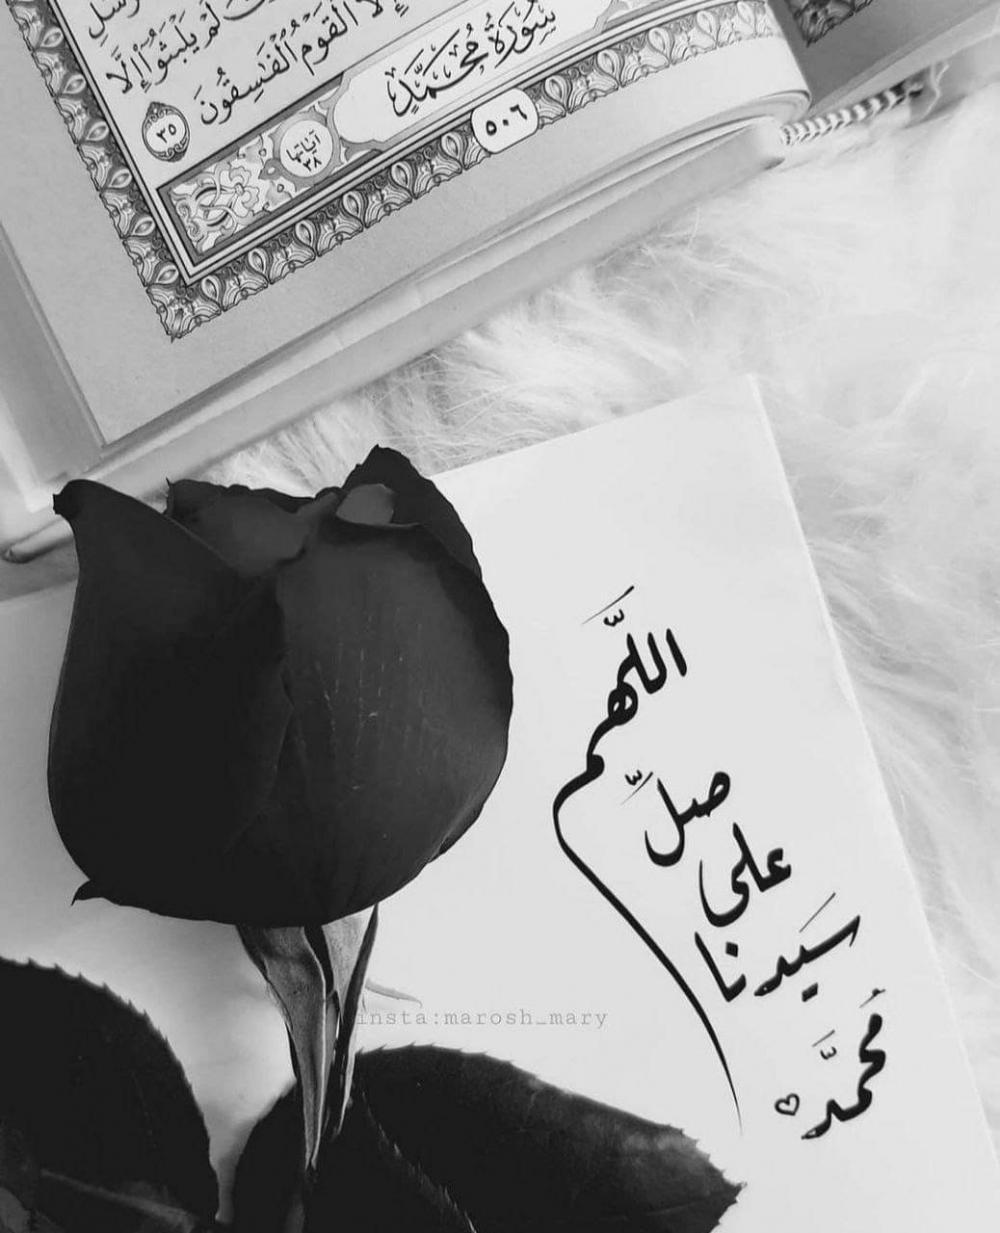 لَمْ يَلْبَثُوٓا۟ إِلَّا
إِلَّا ٱلْقَوْمُ ٱلْفَٰسِقُونَ ٣٥
سُورَةُ مُحَمَّدٍ
آيَاتُها
٣٨
٥٠٦
اللَّهم
صلِّ
على
سَيدنا
مُحمَّد
insta:marosh_mary